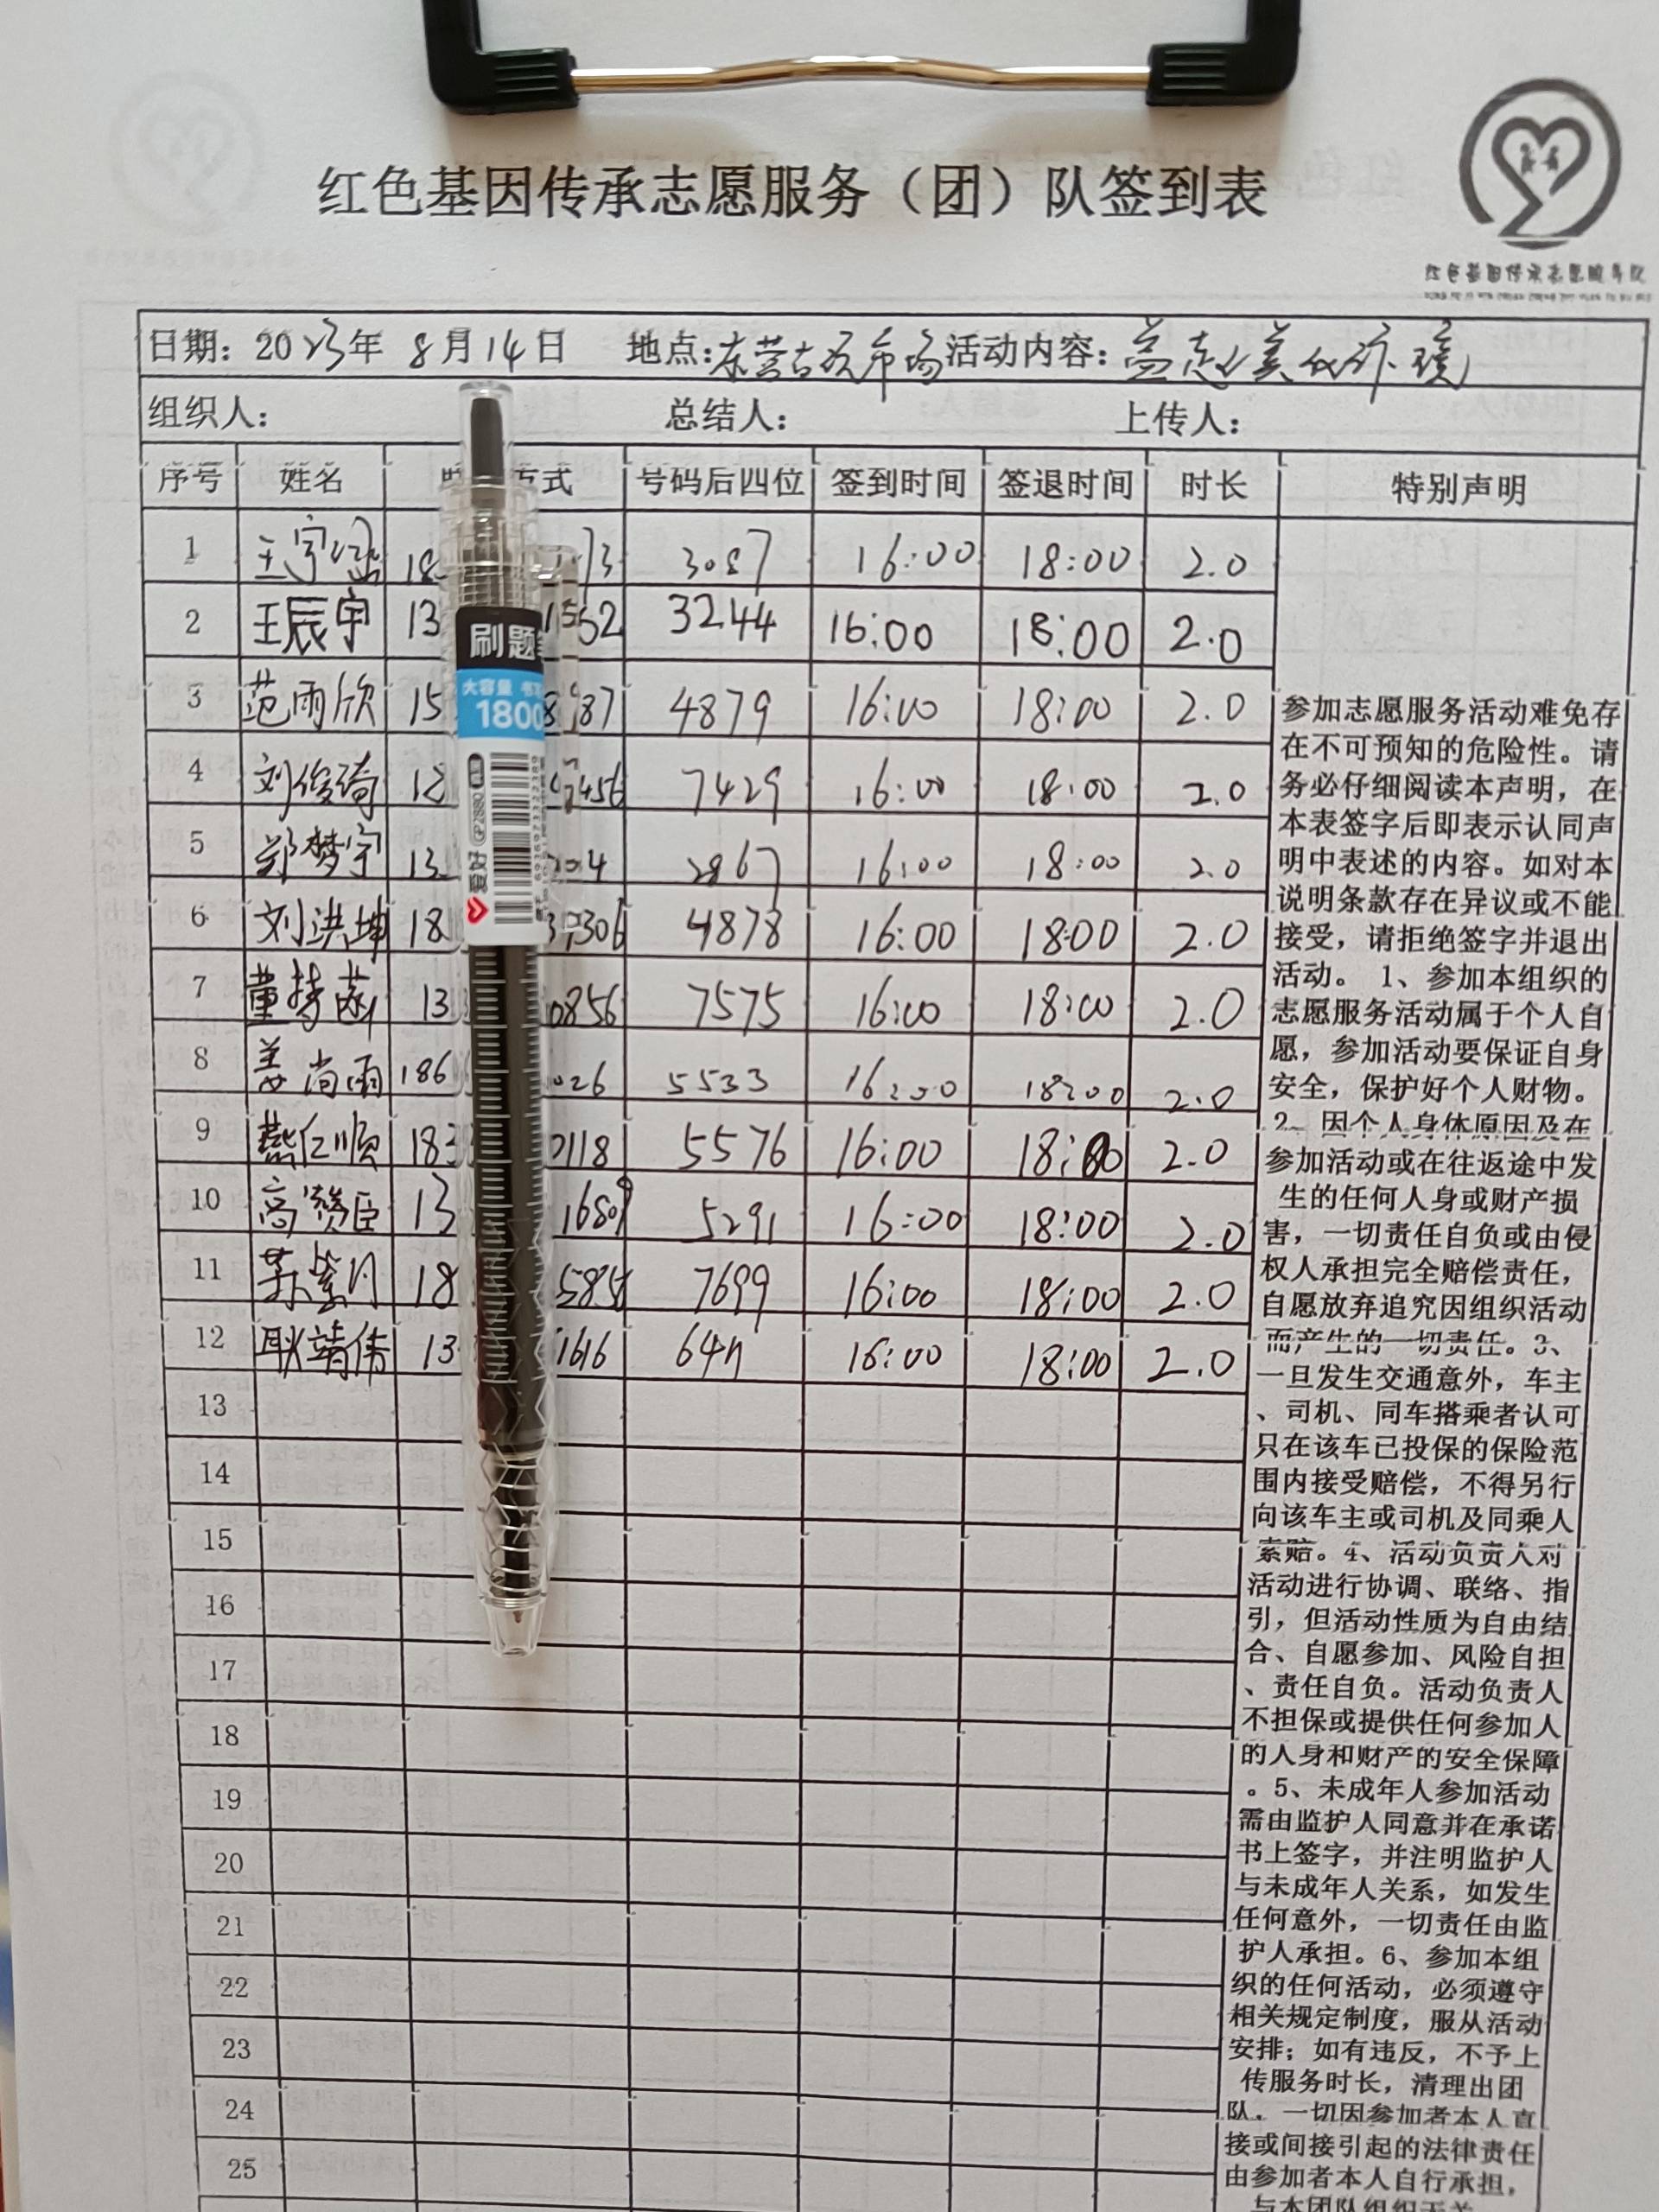 红色基因传承志愿服务（团）队签到表
红色基因传承志愿服务队
日期：2023年 8月14日 地点：东营古玩市场 活动内容：
组织人： 总结人： 上传人：
序号 姓名 方式 号码后四位 签到时间 签退时间 时长 特别声明
1 王宇涵 18 73 3087 16:00 18:00 2.0
2 王辰宇 13 1552 3244 16:00 18:00 2.0
3 范雨欣 15 8787 4879 16:00 18:00 2.0
4 刘俊琦 7456 7429 16:00 18:00 2.0
5 郑梦宇 13 2867 16:00 18:00 2.0
6 刘洪坤 18 39306 4878 16:00 18:00 2.0
7 董 13 0856 7575 16:00 18:00 2.0
8 姜尚雨 186 026 5533 16:00 18:00 2.0
9 燕仁顺 183 0118 5576 16:00 18:00 2.0
10 高赞臣 13 1680 5291 16:00 18:00 2.0
11 苏紫月 18 7699 16:00 18:00 2.0
12 耿靖伟 13 1616 16:00 18:00 2.0
13
14
15
16
17
18
19
20
21
22
23
24
25
参加志愿服务活动难免存
在不可预知的危险性。请
务必仔细阅读本声明，在
本表签字后即表示认同声
明中表述的内容。如对本
说明条款存在异议或不能
接受，请拒绝签字并退出
活动。 1、参加本组织的
志愿服务活动属于个人自
愿，参加活动要保证自身
安全，保护好个人财物。
2、因个人身体原因及在
参加活动或在往返途中发
生的任何人身或财产损
害，一切责任自负或由侵
权人承担完全赔偿责任，
自愿放弃追究因组织活动
而产生的一切责任。3、
一旦发生交通意外，车主
、司机、同车搭乘者认可
只在该车已投保的保险范
围内接受赔偿，不得另行
向该车主或司机及同乘人
索赔。4、活动负责人对
活动进行协调、联络、指
引，但活动性质为自由结
合、自愿参加、风险自担
、责任自负。活动负责人
不担保或提供任何参加人
的人身和财产的安全保障
。5、未成年人参加活动
需由监护人同意并在承诺
书上签字，并注明监护人
与未成年人关系，如发生
任何意外，一切责任由监
护人承担。6、参加本组
织的任何活动，必须遵守
相关规定制度，服从活动
安排；如有违反，不予上
传服务时长，清理出团
队。一切因参加者本人直
接或间接引起的法律责任
由参加者本人自行承担，
与本团队组织无关
刷题
大容量
1800
爱好
GP2880